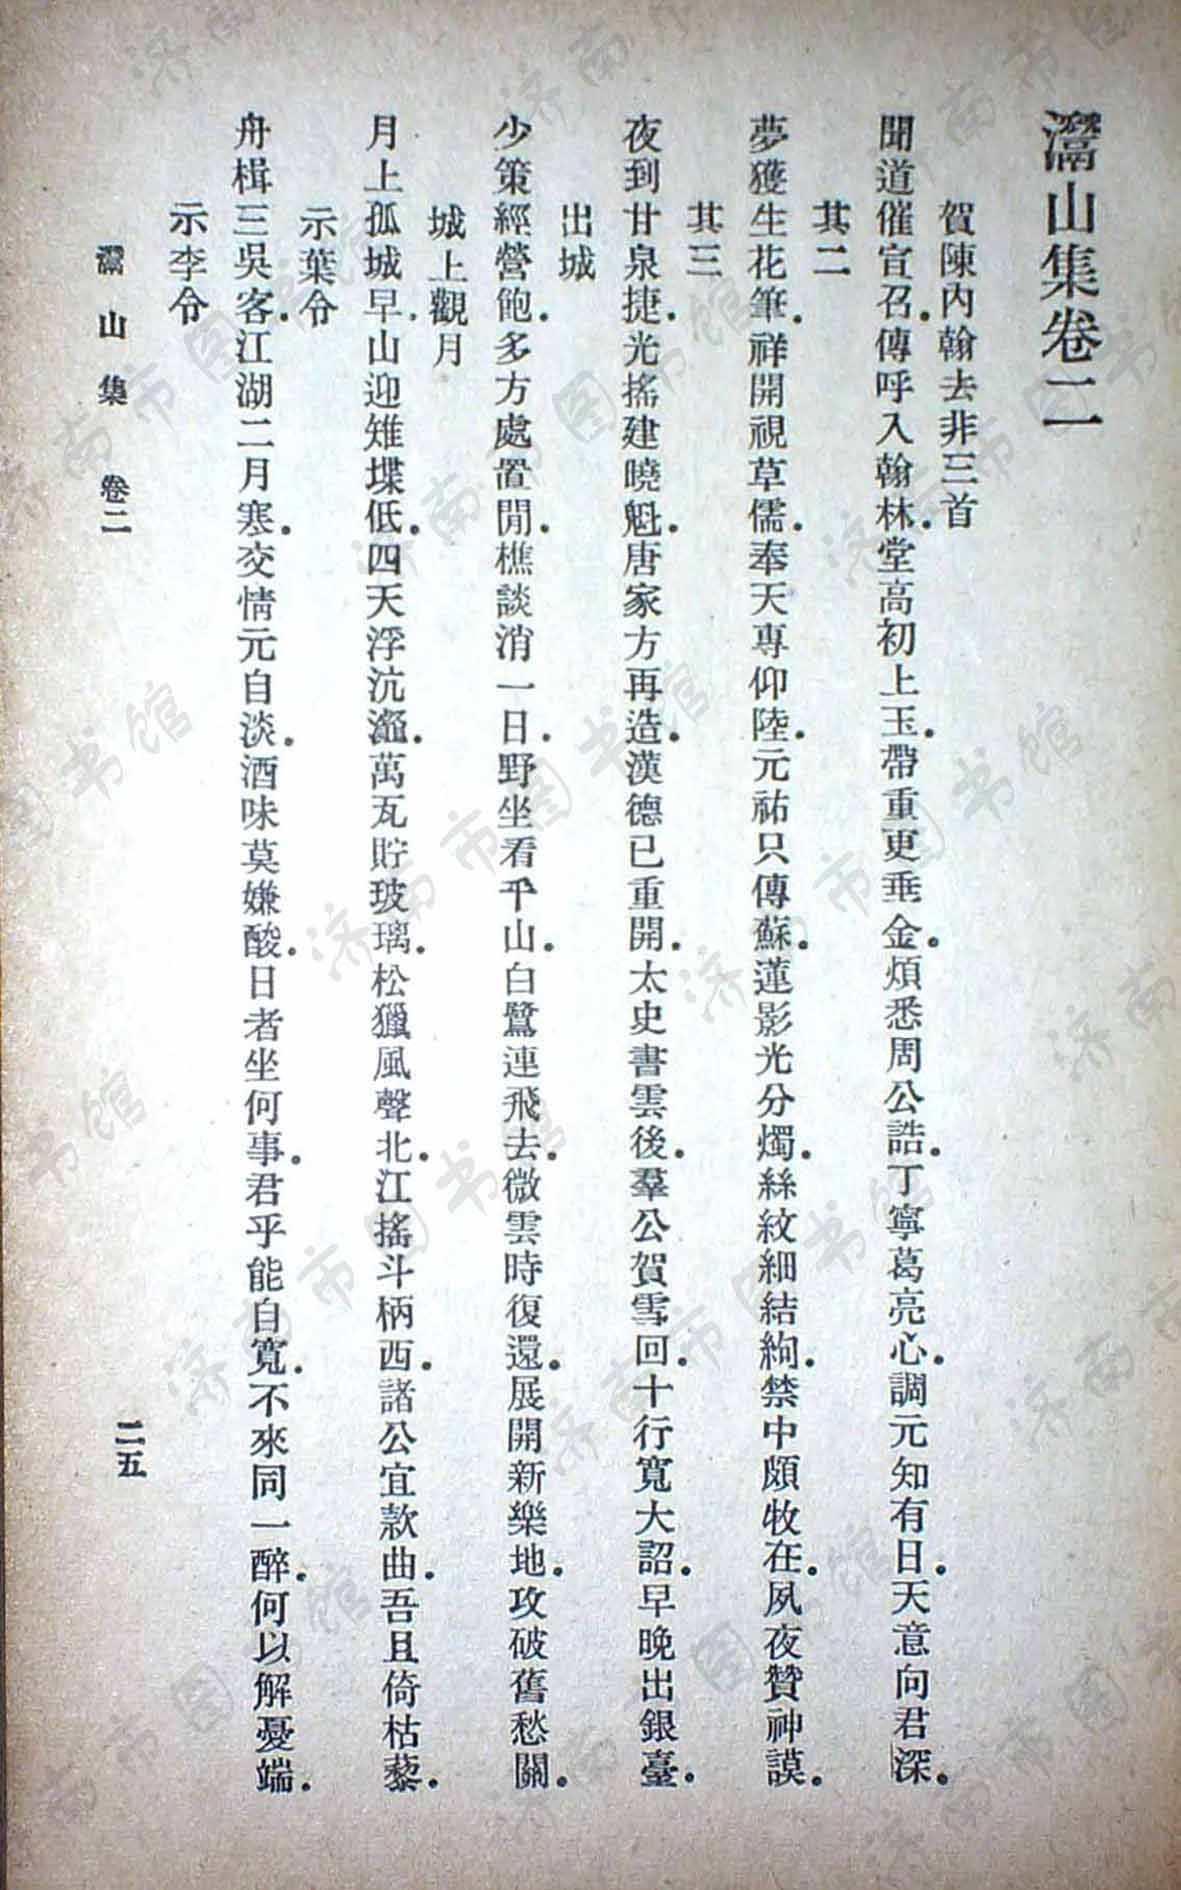 灊山集卷二
賀陳內翰去非三首
聞道催宣召.傳呼入翰林.堂高初上玉.帶重更垂金.煩悉周公誥.丁寧葛亮心.調元知有日.天意向君深.
其二
夢獲生花筆.祥開視草儒.奉天專仰陸.元祐只傳蘇.蓮影光分燭.絲紋細結絇.禁中頗牧在.夙夜贊神謨.
其三
夜到甘泉捷.光搖建曉魁.唐家方再造.漢德已重開.太史書雲後.羣公賀雪回.十行寬大詔.早晚出銀臺.
出城
少策經營飽.多方處置閒.樵談消一日.野坐看千山.白鷺連飛去.微雲時復還.展開新樂地.攻破舊愁關.
城上觀月
月上孤城早.山迎雉堞低.四天浮沆瀣.萬瓦貯玻璃.松獵風聲北.江搖斗柄西.諸公宜款曲.吾且倚枯藜.
示葉令
舟楫三吳客.江湖二月寒.交情元自淡.酒味莫嫌酸.日者坐何事.君乎能自寬.不來同一醉.何以解憂端.
示李令
灊山集 卷二
二五
济南市图书馆